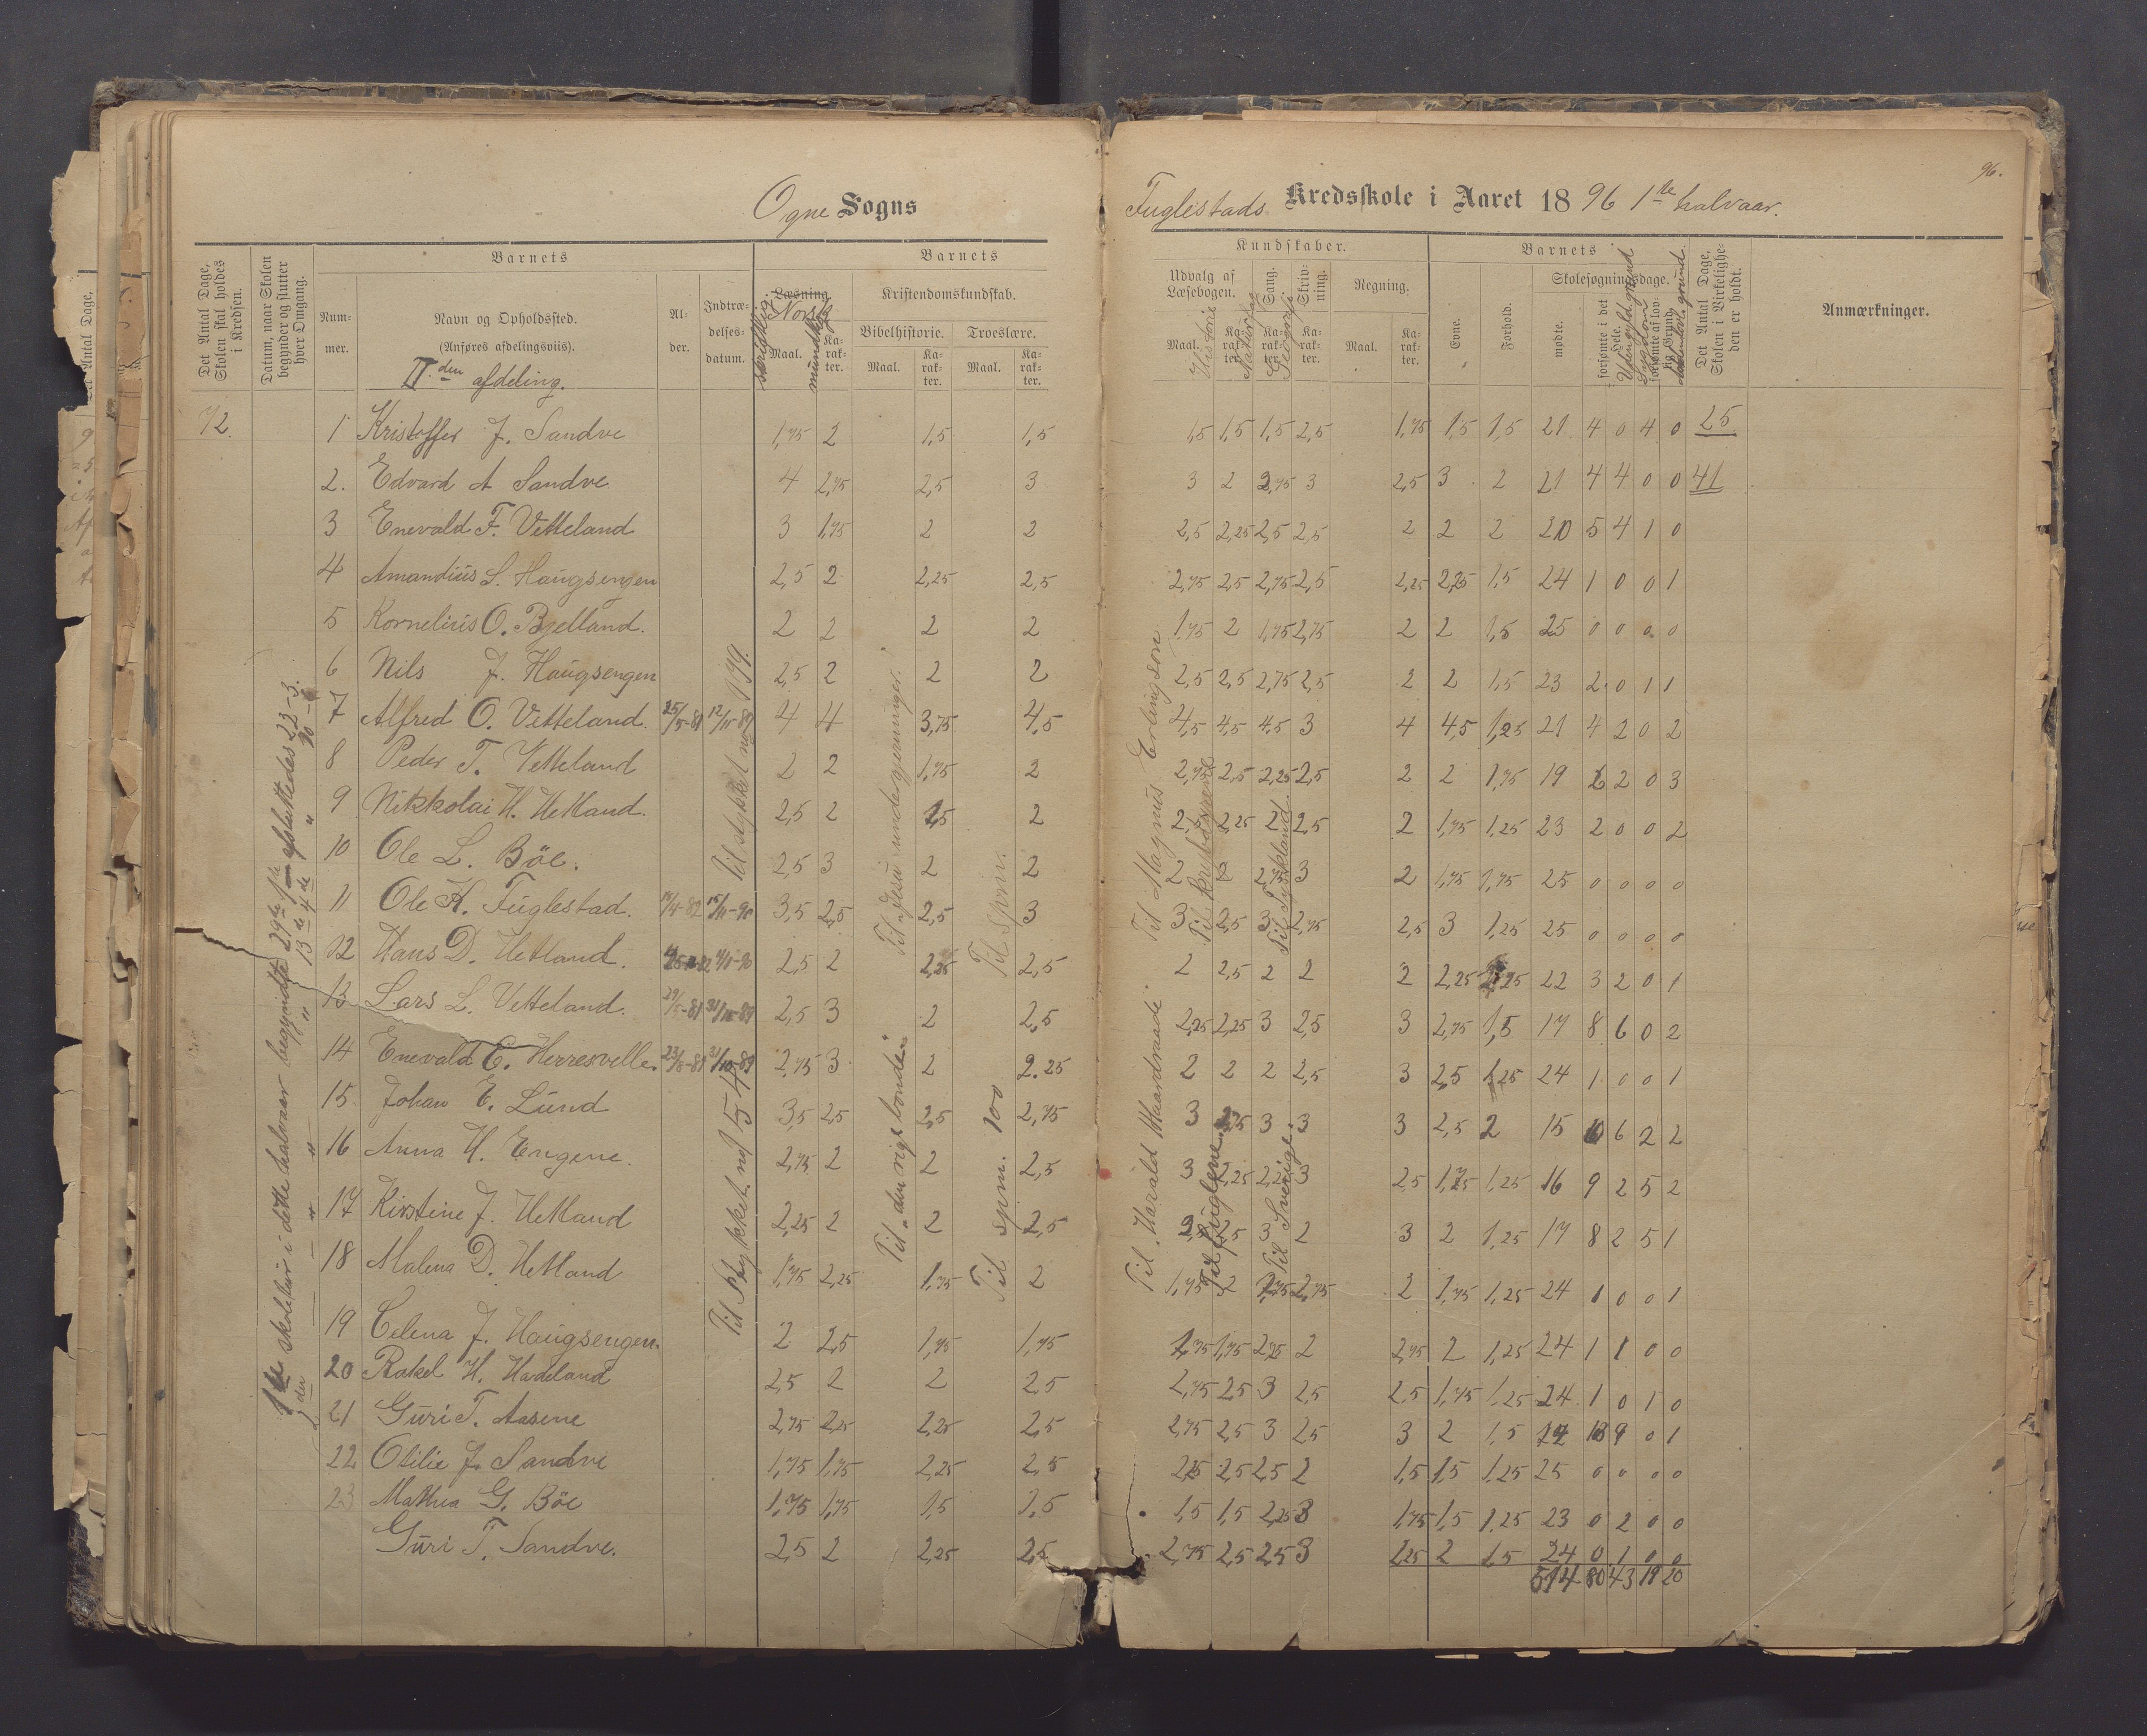 96.
Ogne Sogns
Fuglestads Kredsskole i Aaret 1896 1ste halvaar.
Det Antal Dage, Skolen skal holdes i Kredsen.
Datum, naar Skolen begynder og slutter hver Omgang.
Barnets
Nummer.
Navn og Opholdssted.
(Anføres afdelingsviis).
IIden afdeling.
Alder.
Indtrædelsesdatum.
Barnets
Læsning
Norsk
skriftlig
mundtlig
Maal.
Karakter.
Kristendomskundskab.
Bibelhistorie.
Troeslære.
Maal.
Karakter.
Maal.
Karakter.
Kundskaber.
Udvalg af Læsebogen.
Historie
Maal.
Karakter.
Sang.
Karakter.
Geografi
Skrivning.
Karakter.
Regning.
Maal.
Karakter.
Barnets
Evne.
Forhold.
Skolesøgningsdage.
mødte.
forsømte i det Hele.
forsømte af lovlig Grund.
Sygdom
Det Antal Dage, Skolen i Virkeligheden er holdt.
Anmærkninger.
72. 1 Kristoffer J. Sandve 1,75 2 1,5 1,5 1,5 1,5 1,5 2,5 1,75 1,5 1,5 21 4 0 4 0 25
2. Edvard A Sandve 4 2,75 2,5 3 3 2 2,75 3 2,5 3 2 21 4 4 0 0 41
3 Enevald F. Vetteland 3 1,75 2 2 2,5 2,25 2,5 2,5 2 2 2 20 5 4 1 0
4 Amandius L. Haugsengen 2,5 2 2,25 2,5 2,75 2,5 2,75 2,5 2,25 2,25 1,5 24 1 0 0 1
5 Kornelius O. Bjelland. 2 2 2 2 1,75 2 1,75 2,75 2 2 1,5 25 0 0 0 0
6 Nils J. Haugsengen 2,5 2 2 2 2,5 2,5 2,75 2,5 2 2 1,5 23 2 0 1 1
7 Alfred O. Vetteland. 25/5-81 12/11-89 4 4 3,75 4,5 4,5 4,5 4,5 3 4 4,5 1,25 21 4 2 0 2
8 Peder T. Vetteland 2 2 1,75 2 2,75 2,5 2,25 2,5 2 2 1,75 19 6 2 0 3
9 Nikkolai H. Hetland. 2,5 2 2,5 2 2,5 2,25 2 2,5 2 1,75 1,25 23 2 0 0 2
10 Ole L. Böe. 2,5 3 2 2 2 2 2,75 3 2 1,75 1,75 25 0 0 0 0
11 Ole K. Fuglestad. 3,5 2,5 2,5 3 3 2,5 3 2,75 2,5 3 1,25 25 0 0 0 0
12 Hans D. Hetland. 2,5 2 2,25 2,5 2 2,5 2 2 2 2,25 1,25 22 3 2 0 1
13 Lars L. Vetteland. 2,5 3 2 2,5 2,25 2,25 3 2,5 3 2,75 1,5 17 8 6 0 2
14 Enevald E. Herresvelle. 2,75 3 2 2.25 2 2 2 2,5 3 2,5 1,25 24 1 0 0 1
15 Johan E. Lund 3,5 2,5 2,5 2,75 3 2,75 3 3 3 2,5 2 15 10 6 2 2
16 Anna H. Engene. 2,75 2 2 2,5 3 2,25 2,25 3 2,5 1,75 1,25 16 9 2 5 2
17 Kirstine J. Hetland 2,25 2 2 2,5 2,5 2,5 3 2 3 2 1,25 17 8 2 5 1
18 Malena D. Hetland 1,75 2,25 1,75 2 1,75 2 2,75 2,75 2 1,75 1,25 24 1 0 0 1
19 Celena J. Haugsengen. 2 2,5 1,75 1,75 1,75 1,75 2,25 2 2,75 2 1,25 24 1 1 0 0
20 Rakel H. Hadeland 2,5 2 2 2,5 2,75 2,5 3 2,5 2,5 1,75 1,25 24 1 0 1 0
21 Guri T. Aasene 2,75 2,25 2,25 2,5 2,75 2,5 3 2,5 3 2 1,5 12 13 9 0 1
22 Otilie J. Sandve 1,75 1,75 2,25 2,5 2,25 2,5 2,5 2 1,5 1,5 1,25 25 0 0 0 0
23 Mathea G. Böe 1,75 1,75 1,5 1,5 1,5 1,5 2,25 3 1,75 1,5 1,25 23 0 2 0 0
Guri T. Sandve. 2,5 2 2,25 2,5 2,75 2,5 2,5 3 2,25 2 1,5 24 0 1 0 0
514 80 43 19 20
1ste skoletur i dette halvaar begyndte 29de 1ste afsluttedes 22-3.
2den " " " 13de 4de " 20-6
Til stykket no 179.
Til Stykket no 54
Til Jesu undergjerninger.
Til den rige bonde.
Til spm.
Til spm. 100
Til Magnus Erlingsøn
Til Harald Haardraade
Til krybdyrene
Til fuglene.
Til Tyskland.
Til Sverige.